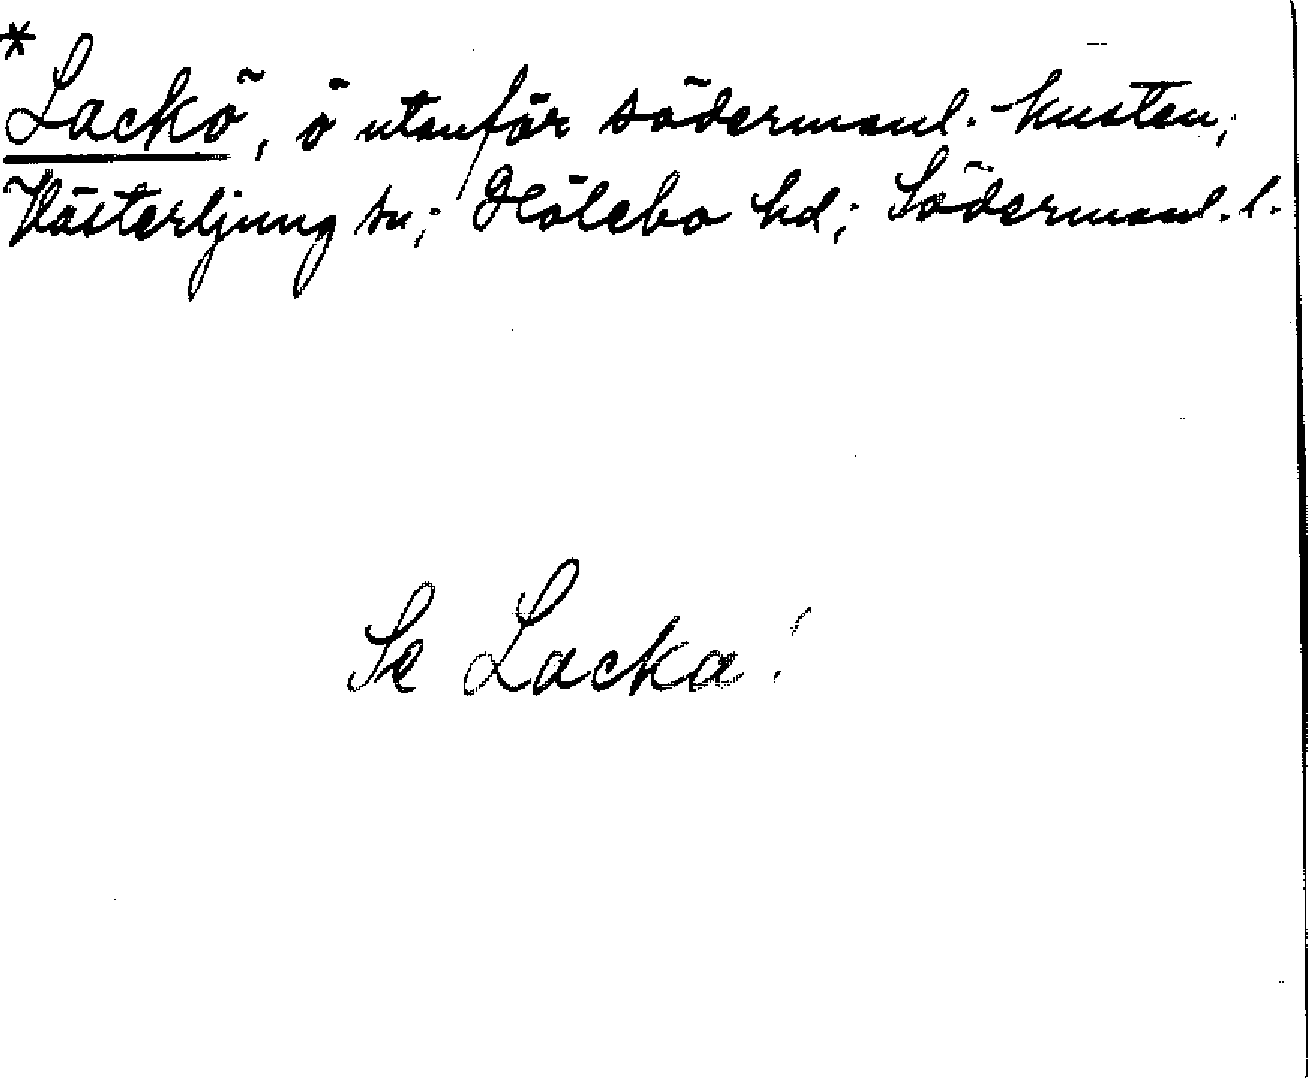 *
Lackö, ö utanför södermanl. kusten;
Västerljung sn; Hölebo hd; Södermanl. l.
Se Lacka!